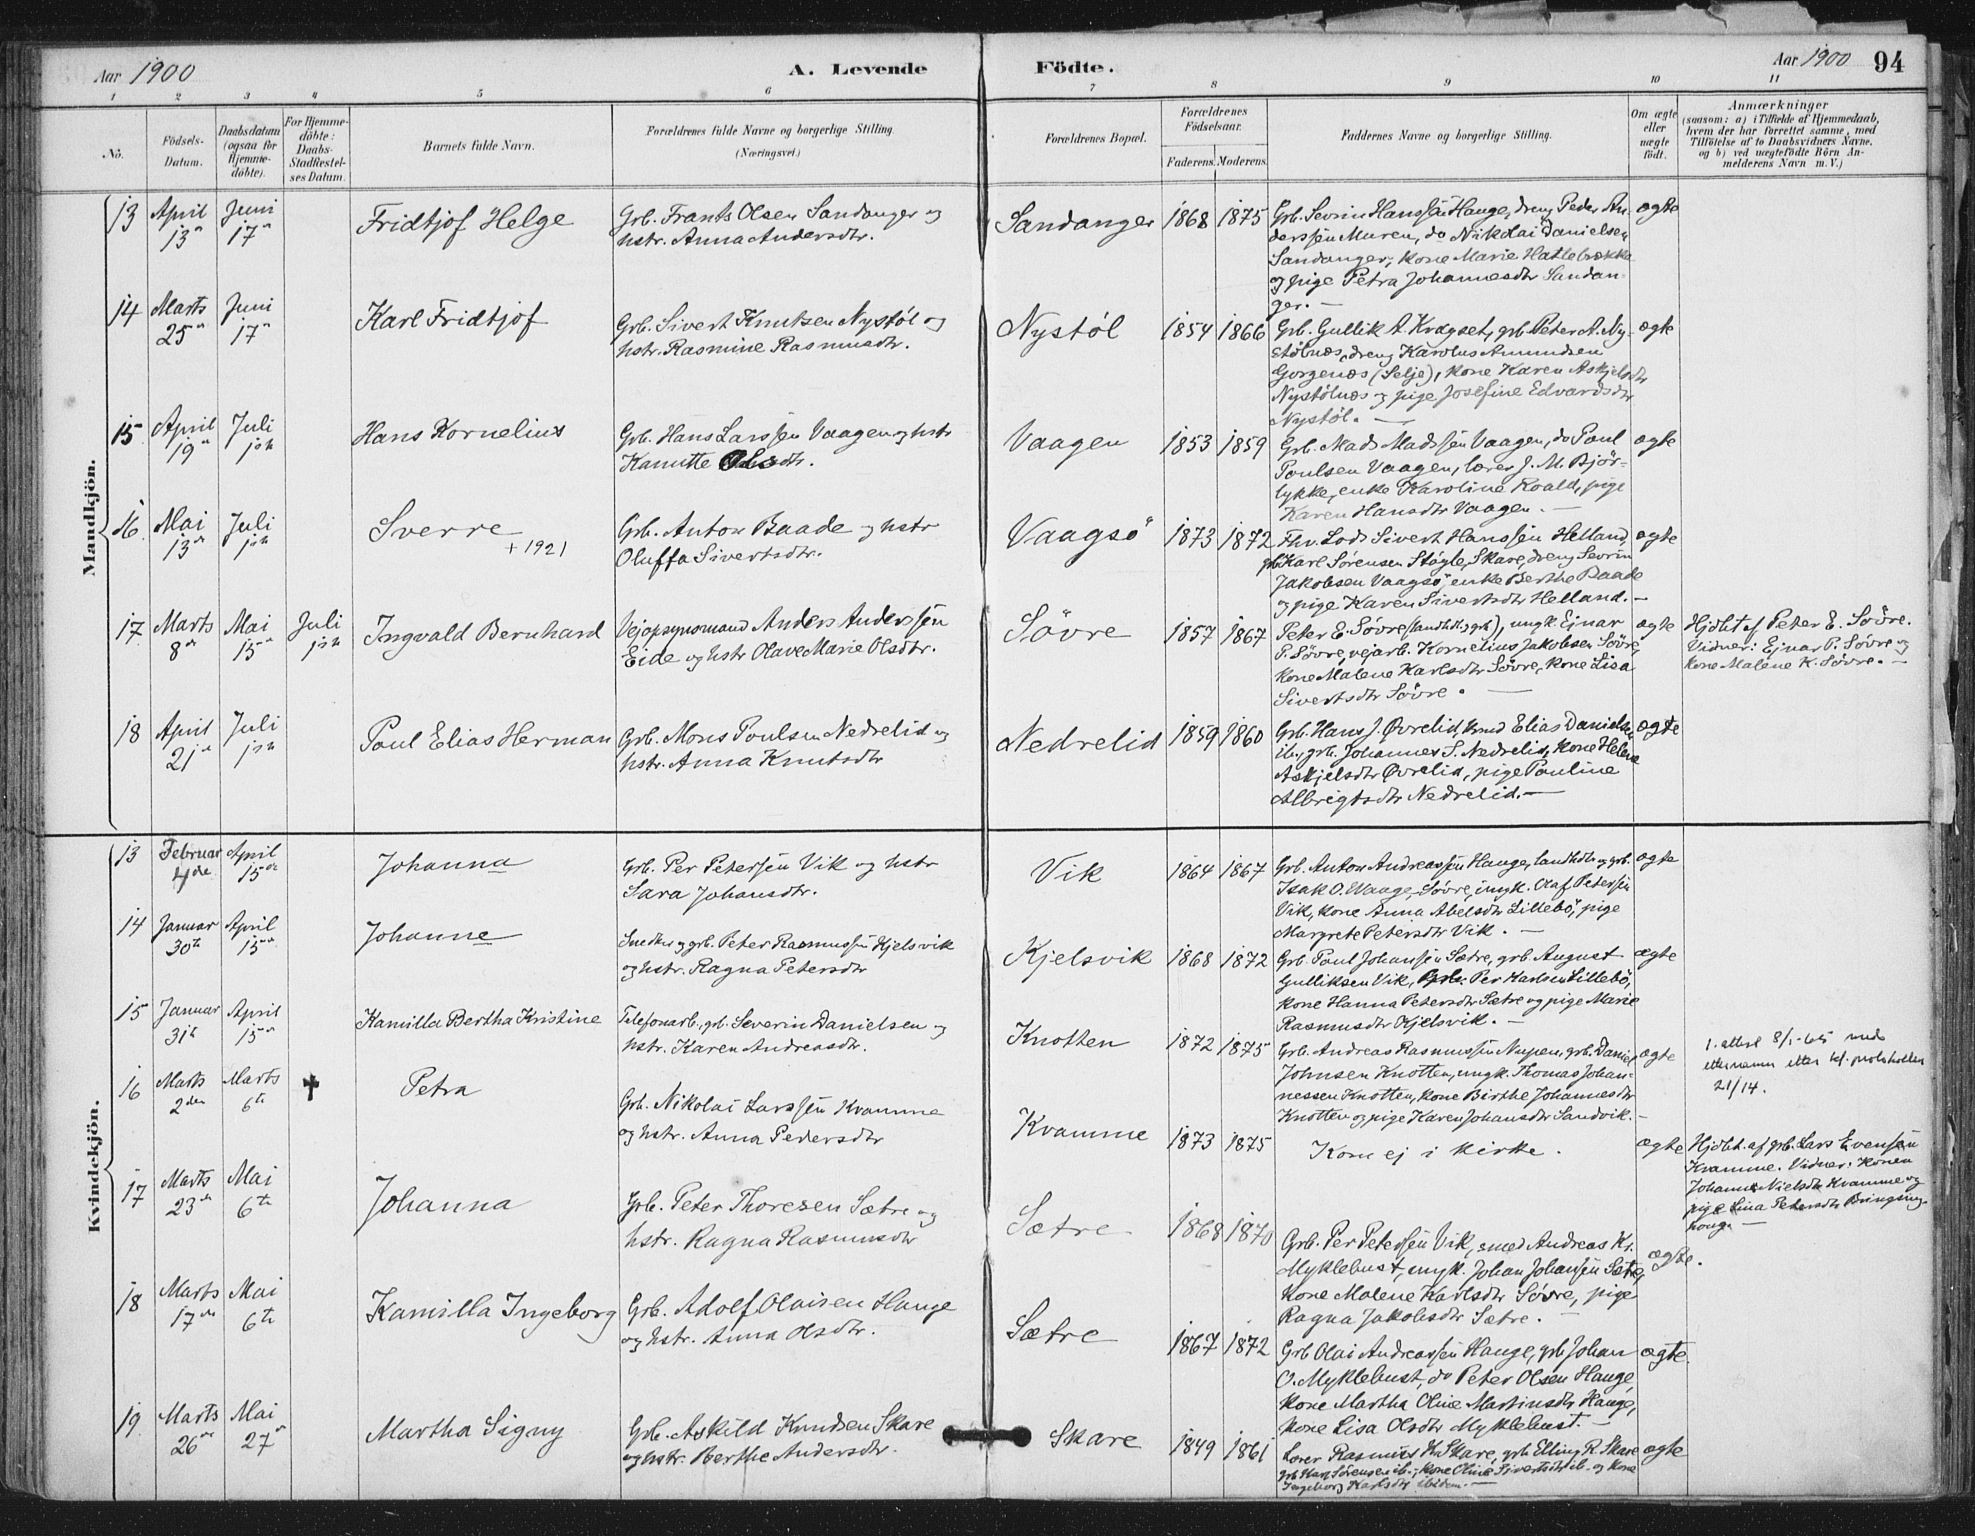 Aar 1900
A. Levende
Födte.
Aar 1900
94
1 2 3 4 5 6 7 8 9 10 11
No.
Födsels-
Datum.
Daabsdatum
(ogsaa for
Hjemme-
döbte).
For Hjemme-
döbte:
Daabs-
Stadfæstel-
ses Datum.
Barnets fulde Navn.
Forældrenes fulde Navne og borgerlige Stilling.
(Næringsvei.)
Forældrenes Bopæl.
Forældrenes
Födselsaar.
Faderens. Moderens.
Faddernes Navne og borgerlige Stilling.
Om ægte
eller
uægte
födt.
Anmærkninger
(saasom: a) i Tilfælde af Hjemmedaab,
hvem der har forrettet samme, med
Tilföielse af to Daabsvidners Navne,
og b) ved uægtefödte Börn An-
melderens Navn m. V.)
Mandkjön.
13 April 13de Juni 17de
Fridtjof Helge
Grb. Frants Olsen Sandanger og
hstr. Anna Andersdtr.
Sandanger 1868 1875
Grb. Sevrin Hanssen Hauge, dreng Peder An-
derssen Muren, do Nikolai Danielsen
Sandanger, kone Marie Hatlebrække
og pige Petra Johannesdtr Sandan-
ger. —
ægte
14 Marts 25de Juni 17de
Karl Fridtjof
Grb. Sivert Knutsen Nystøl og
hstr. Rasmine Rasmusdtr.
Nystøl 1854 1866
Grb. Gullik A. Kragset, grb. Peter A. Ny-
stølnæs, dreng Karolus Amundsen
Gorgenæs (Selje), kone Karen Askjelsdtr
Nystølnæs og pige Josefine Edvardsdtr
Nystøl. —
ægte
15 April 19de Juli 1ste
Hans Kornelius
Grb. Hans Larssen Vaagen og hstr
Kanutte Olsdtr.
Vaagen 1853 1859
Grb. Mads Madssen Vaagen, do Paul
Poulsen Vaagen, lærer J. M. Bjør-
lykke, enke Karoline Roald, pige
Karen Hansdtr Vaagen. —
ægte
16 Mai 13de Juli 1ste
Sverre
+ 1921
Grb. Anton Baade og hstr
Oluffa Sivertsdtr.
Vaagsö 1873 1872
Fhv. Lods Sivert Hanssen Helland,
grb Karl Sørensen Støgle, Skare, dreng Sevrin
Jakobsen Vaagsö, enke Berthe Baade
og pige Karen Sivertsdtr Helland. —
ægte
17 Marts 8de Mai 15de Juli 1ste
Ingvald Bernhard
Vejopsynsmand Anders Anderssen
Eide og hstr Olave Marie Olsdtr.
Sövre 1857 1867
Peter E. Søvre (landhdl. og grb), ungk Ejnar
P. Søvre, vejarb. Kornelius Jakobsen Søvre
kone Malene Karlsdtr Søvre, kone Lisa
Sivertsdtr Søvre. —
ægte
Hjdbt af Peter E. Søvre.
Vidner: Ejnar P. Søvre og
kone Malene K. Søvre. —
18 April 21de Juli 1ste
Paul Elias Herman
Grb. Mons Poulsen Nedrelid og
hstr. Anna Knutsdtr
Nedrelid 1859 1860
Grb. Hans J. Øvrelid, smed Elias Danielsen
ib, grb. Johannes S. Nedrelid, kone Helene
Askjelsdtr Øvrelid, pige Pauline
Albrigtsdtr Nedrelid. —
ægte
Kvindekjön.
13 Februar 4de April 15de
Johanna
Grb. Per Peterssen Vik og hstr
Sara Johansdtr.
Vik 1864 1867
Grb. Anton Andreassen Hauge, landhdlr og grb.
Isak O. Waage, Søvre, ungk. Olaf Peterssen
Vik, kone Anna Abelsdtr Lillebö, pige
Margrete Petersdtr Vik. —
ægte
14 Januar 30te April 15de
Johanne
Snedker og grb. Peter Rasmussen Kjelsvik
og hstr. Ragna Petersdtr
Kjelsvik 1868 1872
Grb. Paul Johanssen Sætre, grb. August
Gulliksen Vik, Grb. Per Karlsen Lillebö,
kone Hanna Petersdtr Sætre og pige Marie
Rasmusdtr Kjelsvik. —
ægte
15 Januar 31te April 15de
Kamilla Bertha Kristine
Telefonarb., grb. Severin Danielsen og
hstr. Karen Andreasdtr.
Knotten 1872 1875
Grb. Andreas Rasmussen Nupen, grb. Daniel
Johnsen Knotten, ungk. Thomas Johan-
nessen Knotten, kone Birthe Johannesdtr
Knotten og pige Karen Johansdtr Sandvik. —
ægte
1. attest 8/1-65 med
etternamn etter kf. protokollen
21/14.
16 Marts 2den Marts 6te †
Petra
Grb. Nikolai Larssen Kvamme
og hstr. Anna Pedersdtr
Kvamme 1873 1875
Kom ej i kirke.
ægte
Hjdbt. af grb. Lars Evensen
Kvamme. Vidner: Konen
Johanne Nielsdtr Kvamme og
pige Lina Petersdtr Bringsing-
houg. —
17 Marts 23de Mai 6te
Johanna
Grb. Peter Thoresen Sætre og
hstr. Ragna Rasmusdtr
Sætre 1868 1870
Grb. Per Peterssen Vik, smed Andreas Kr.
Myklebust, ungk. Johan Johanssen Sætre,
kone Malene Karlsdtr Søvre, pige
Ragna Jakobsdtr Sætre. —
ægte.
18 Marts 17de Mai 6te
Kamilla Ingeborg
Grb. Adolf Olaisen Hauge
og hstr. Anna Olsdtr.
Sætre 1867 1872
Grb Olai Andreassen Hauge, grb Johan
O. Myklebust, do Peter Olsen Hauge,
kone Martha Oline Martinsdtr Hauge,
kone Lisa Olsdtr Myklebust. —
ægte
19 Marts 26de Mai 27de
Martha Signy
Grb. Askild Knudsen Skare
og hstr. Berthe Andersdtr.
Skare 1849 1861
Lærer Rasmus K. Skare, grb Elling R. Skare
grb Karl Sørensen ib., kone Oline Sivertsdtr ib. og kone
Ingeborg Karlsdtr ibidem. —
ægte